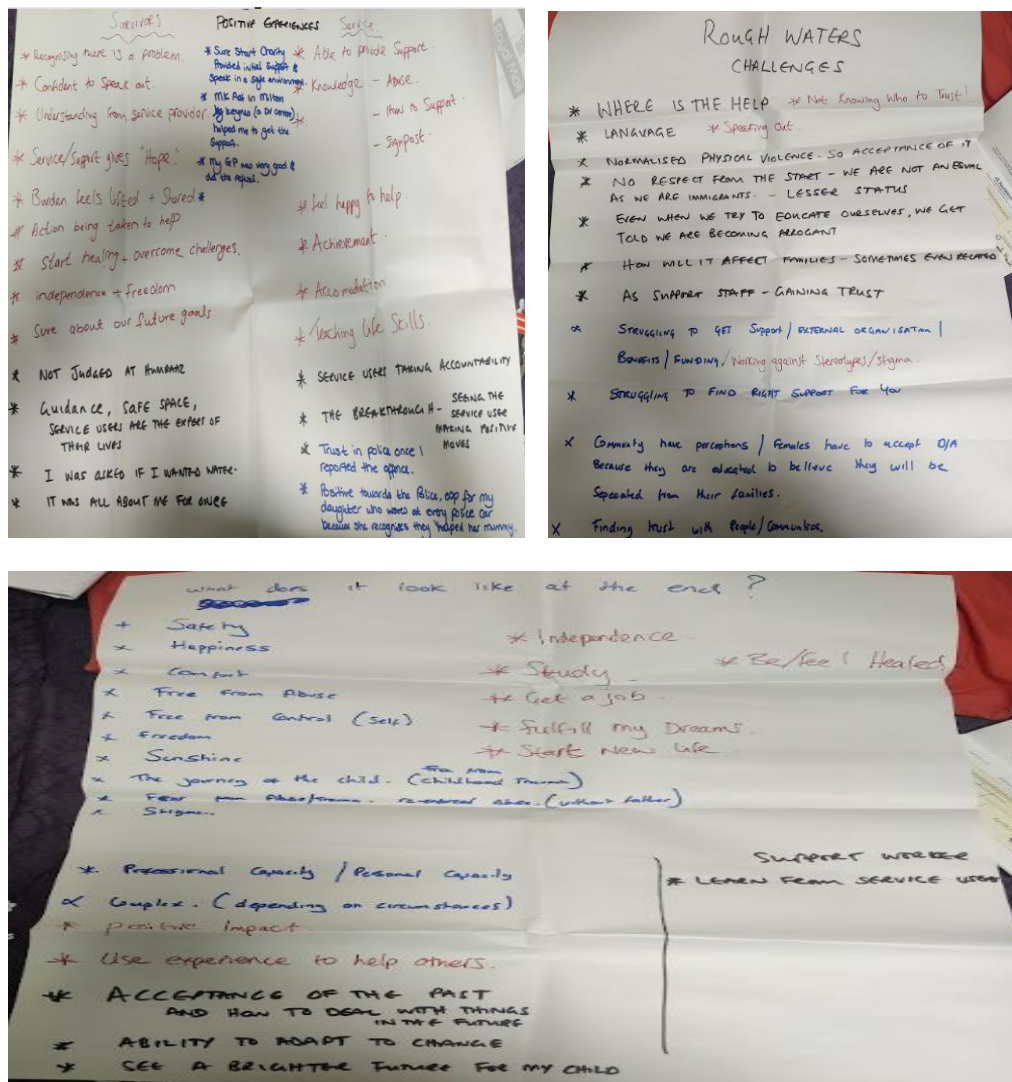 SURVIVORS
* Recognising there is a problem.
* Confident to Speak out.
* Understanding from service provider.
* Service/Support gives "Hope".
* Burden feels lifted + Shared
* Action being taken to help
* Start healing + overcome challenges.
* independence + freedom
* Sure about our future goals
* NOT JUDGED AT
* GUIDANCE, SAFE SPACE,
SERVICE USERS ARE THE EXPERT OF
THEIR LIVES
* I WAS ASKED IF I WANTED WATER.
* IT WAS ALL ABOUT ME FOR ONCE
POSITIVE EXPERIENCES
* Sure Start Charity
Provided initial Support &
Speak in a safe environment.
* MK Act in Milton
Keynes (a DV centre)
helped me to get the
Support.
* My GP was very good &
did the referral.
*
Service
* Able to provide Support.
* Knowledge - Abuse.
* - How to Support.
- Signpost.
* Feel happy to help.
* Achievement.
* Accomodation.
* Teaching Life Skills.
* SERVICE USERS TAKING ACCOUNTABILITY
* THE BREAKTHROUGH - SEEING THE
SERVICE USER
MAKING POSITIVE
MOVES
* Trust in police once I
reported the offence.
* Positive towards the Police, esp for my
daughter who waves at every police car
because she recognises they helped her mummy.
ROUGH WATERS
CHALLENGES
* WHERE IS THE HELP * Not Knowing Who to Trust!
* LANGUAGE * Speaking Out.
* NORMALISED PHYSICAL VIOLENCE. SO ACCEPTANCE OF IT
* NO RESPECT FROM THE START - WE ARE NOT AN EQUAL
AS WE ARE IMMIGRANTS. - LESSER STATUS
* EVEN WHEN WE TRY TO EDUCATE OURSELVES, WE GET
TOLD WE ARE BECOMING ARROGANT
* HOW WILL IT AFFECT FAMILIES - SOMETIMES EVEN RELATED
* AS SUPPORT STAFF - GAINING TRUST
* STRUGGLING TO GET Support / EXTERNAL ORGANISATION /
BENEFITS / FUNDING / Working against Stereotypes/Stigma.
* STRUGGLING TO FIND RIGHT SUPPORT FOR YOU
* Community have perceptions / Females have to accept D/A
Because they are educated to believe they will be
Seperated from their families.
* Finding trust with People/Communities.
what does it look like at the end?
* Safety
* Happiness
* Comfort
* Free From Abuse
* Free From Control (Self)
* Freedom
* Sunshine
* The journey of the child. (Free From childhood Trauma)
* Fear from Abuse/trauma. (without father)
* Stigma.
* Independence
* Study
* Get a job
* Fulfill my Dreams.
* Start New Life
* Be/Feel Healed
* Professional Capacity / Personal Capacity
* Complex. (depending on circumstances)
* positive impact
* Use experience to help others.
* ACCEPTANCE OF THE PAST
AND HOW TO DEAL WITH THINGS
IN THE FUTURE
* ABILITY TO ADAPT TO CHANGE
* SEE A BRIGHTER FUTURE FOR MY CHILD
SUPPORT WORKER
* LEARN FROM SERVICE USER